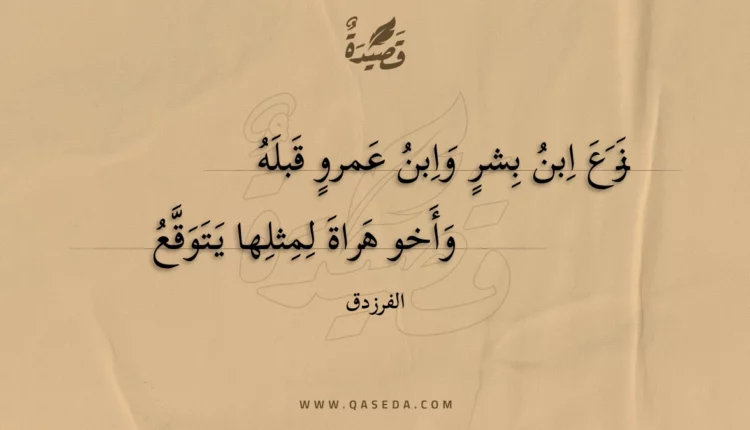 قَصِيْدَةٌ
نَزَعَ اِبنُ بِشرٍ وَاِبنُ عَمروٍ قَبلَهُ
وَأَخو هَراةَ لِمِثلِها يَتَوَقَّعُ
الفرزدق
WWW.QASEDA.COM